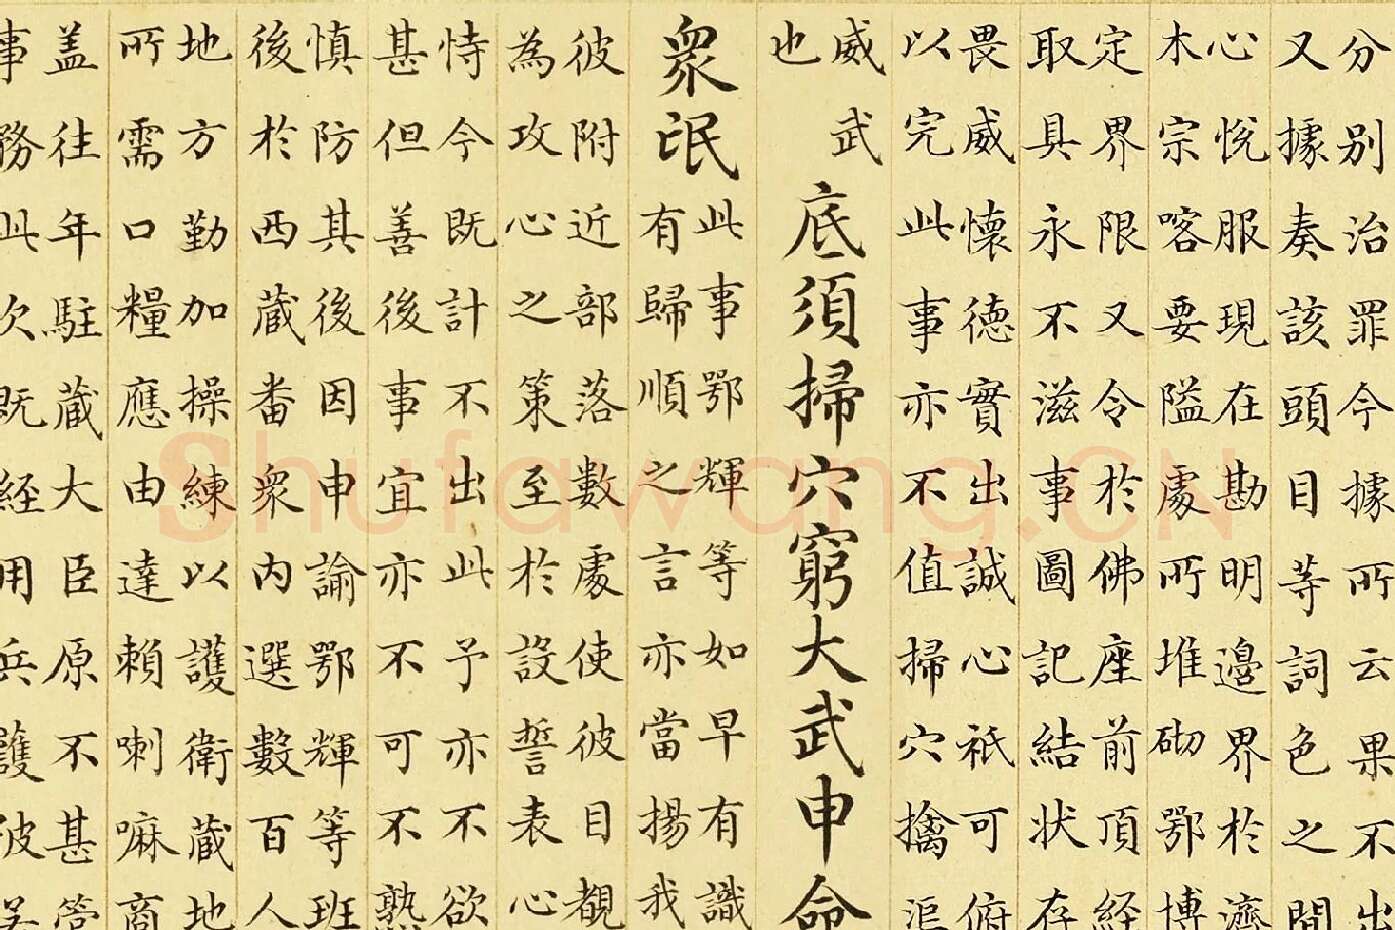 分别治罪今據所云果不出
又據奏該頭目等詞色之間
心悅服現在勘明邊界於濟
木宗喀要隘處所堆砌鄂博
定界限又令於佛座前頂経
取具永不滋事圖記結狀存
畏威懷德實出誠心祇可俯
以完此事亦不值掃穴擒渠
威武
也
底須掃穴窮大武申命
衆氓
此事鄂輝等如早有識
有歸順之言亦當揚我
彼附近部落數處使彼目覩
為攻心之策至於設誓表心
恃今既計不出此予亦不欲
甚但善後事宜亦不可不熟
慎防其後因申諭鄂輝等班
後於西蔵番衆内選數百人
地方勤加操練以護衛蔵地
所需口糧應由達賴喇嘛商
盖往年駐蔵大臣原不甚管
事務此次既経用兵護彼
Shufawang.CN